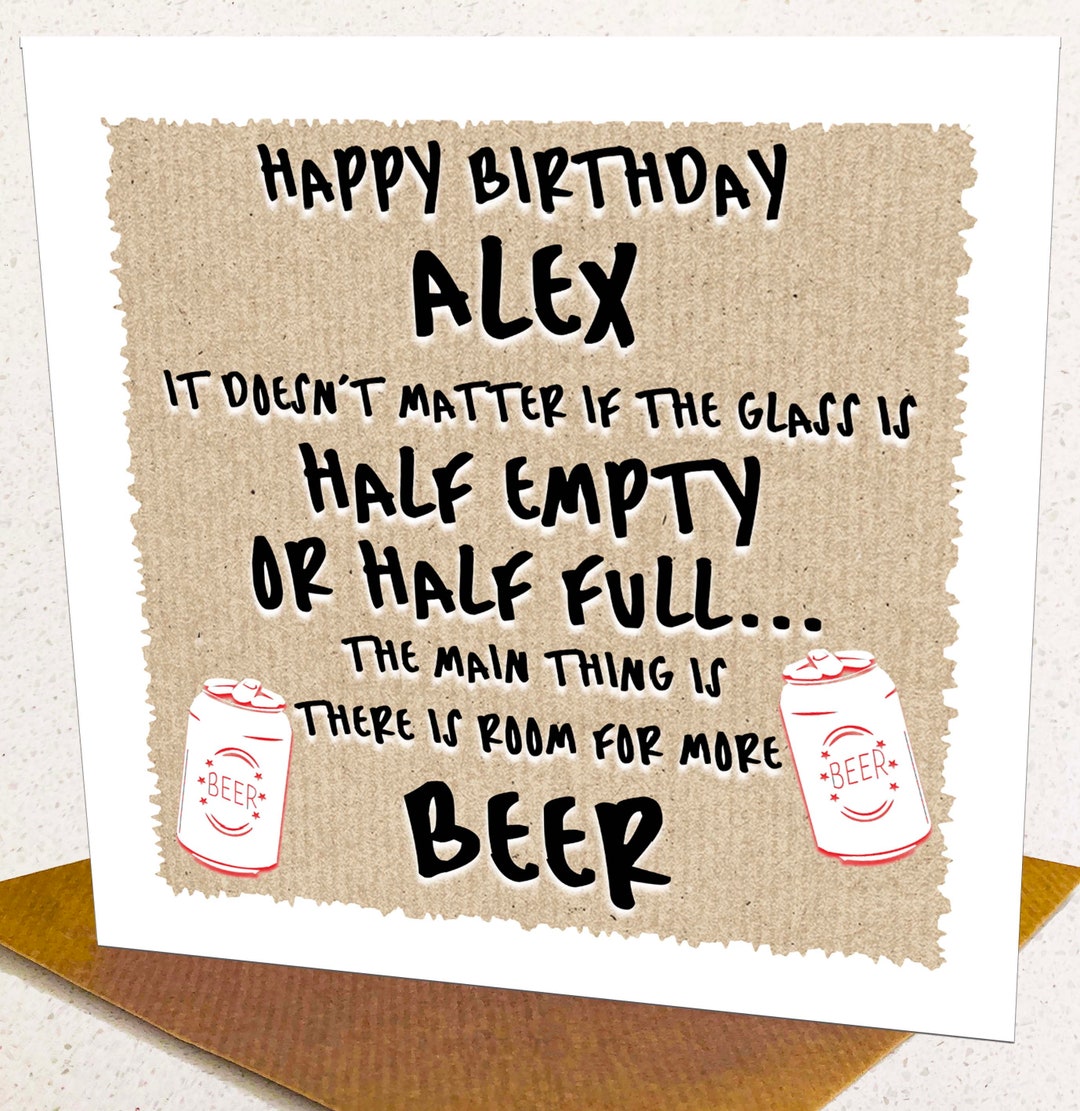 HAPPY BIRTHDAY
ALEX
IT DOESN'T MATTER IF THE GLASS IS
HALF EMPTY
OR HALF FULL...
THE MAIN THING IS
THERE IS ROOM FOR MORE
BEER
BEER
BEER